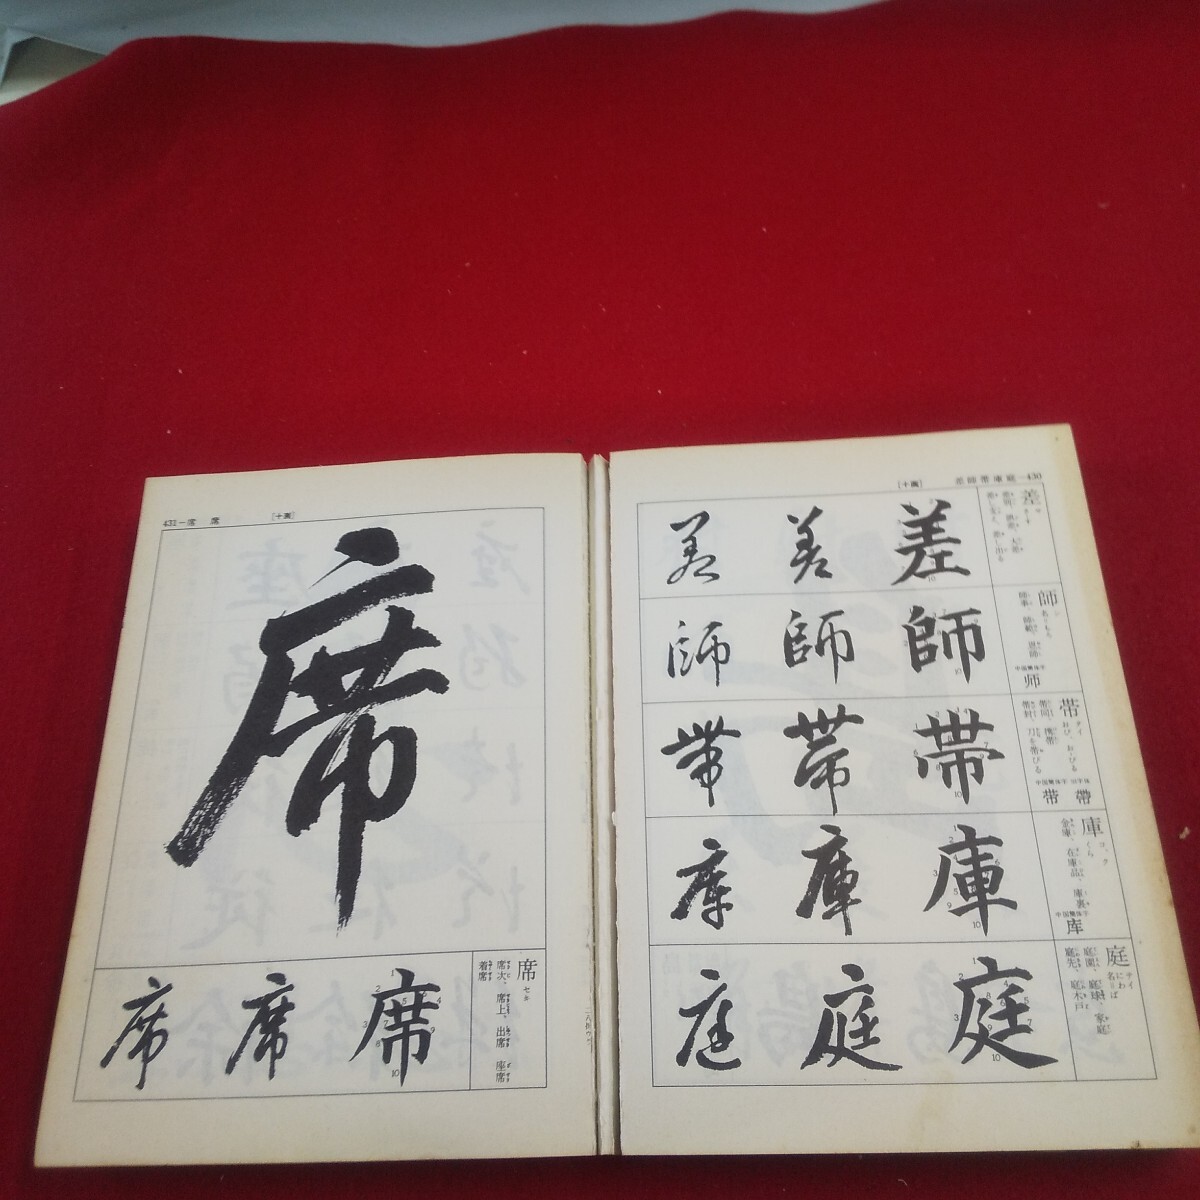 差師帯庫庭―430
[十画]
差
サ
さす
差別、誤差、大差
差し引く、差し出る
差 差 差
師
シ
師事、師範、恩師
中国簡体字
师
師 師 師
帯
タイ
おび、おびる
帯同、携帯
帯封、刀を帯びる
中国簡体字 旧字体
带 帶
帯 帯 帯
庫
コ、ク
くら
金庫、在庫品、庫裏
中国簡体字
库
庫 庫 庫
庭
テイ
にわ
庭園、庭球、家庭
庭先、庭木戸
庭 庭 庭
[十画]
431―席 席
席
席
セキ
席次、席上、出席、座席
着席
席 席 席